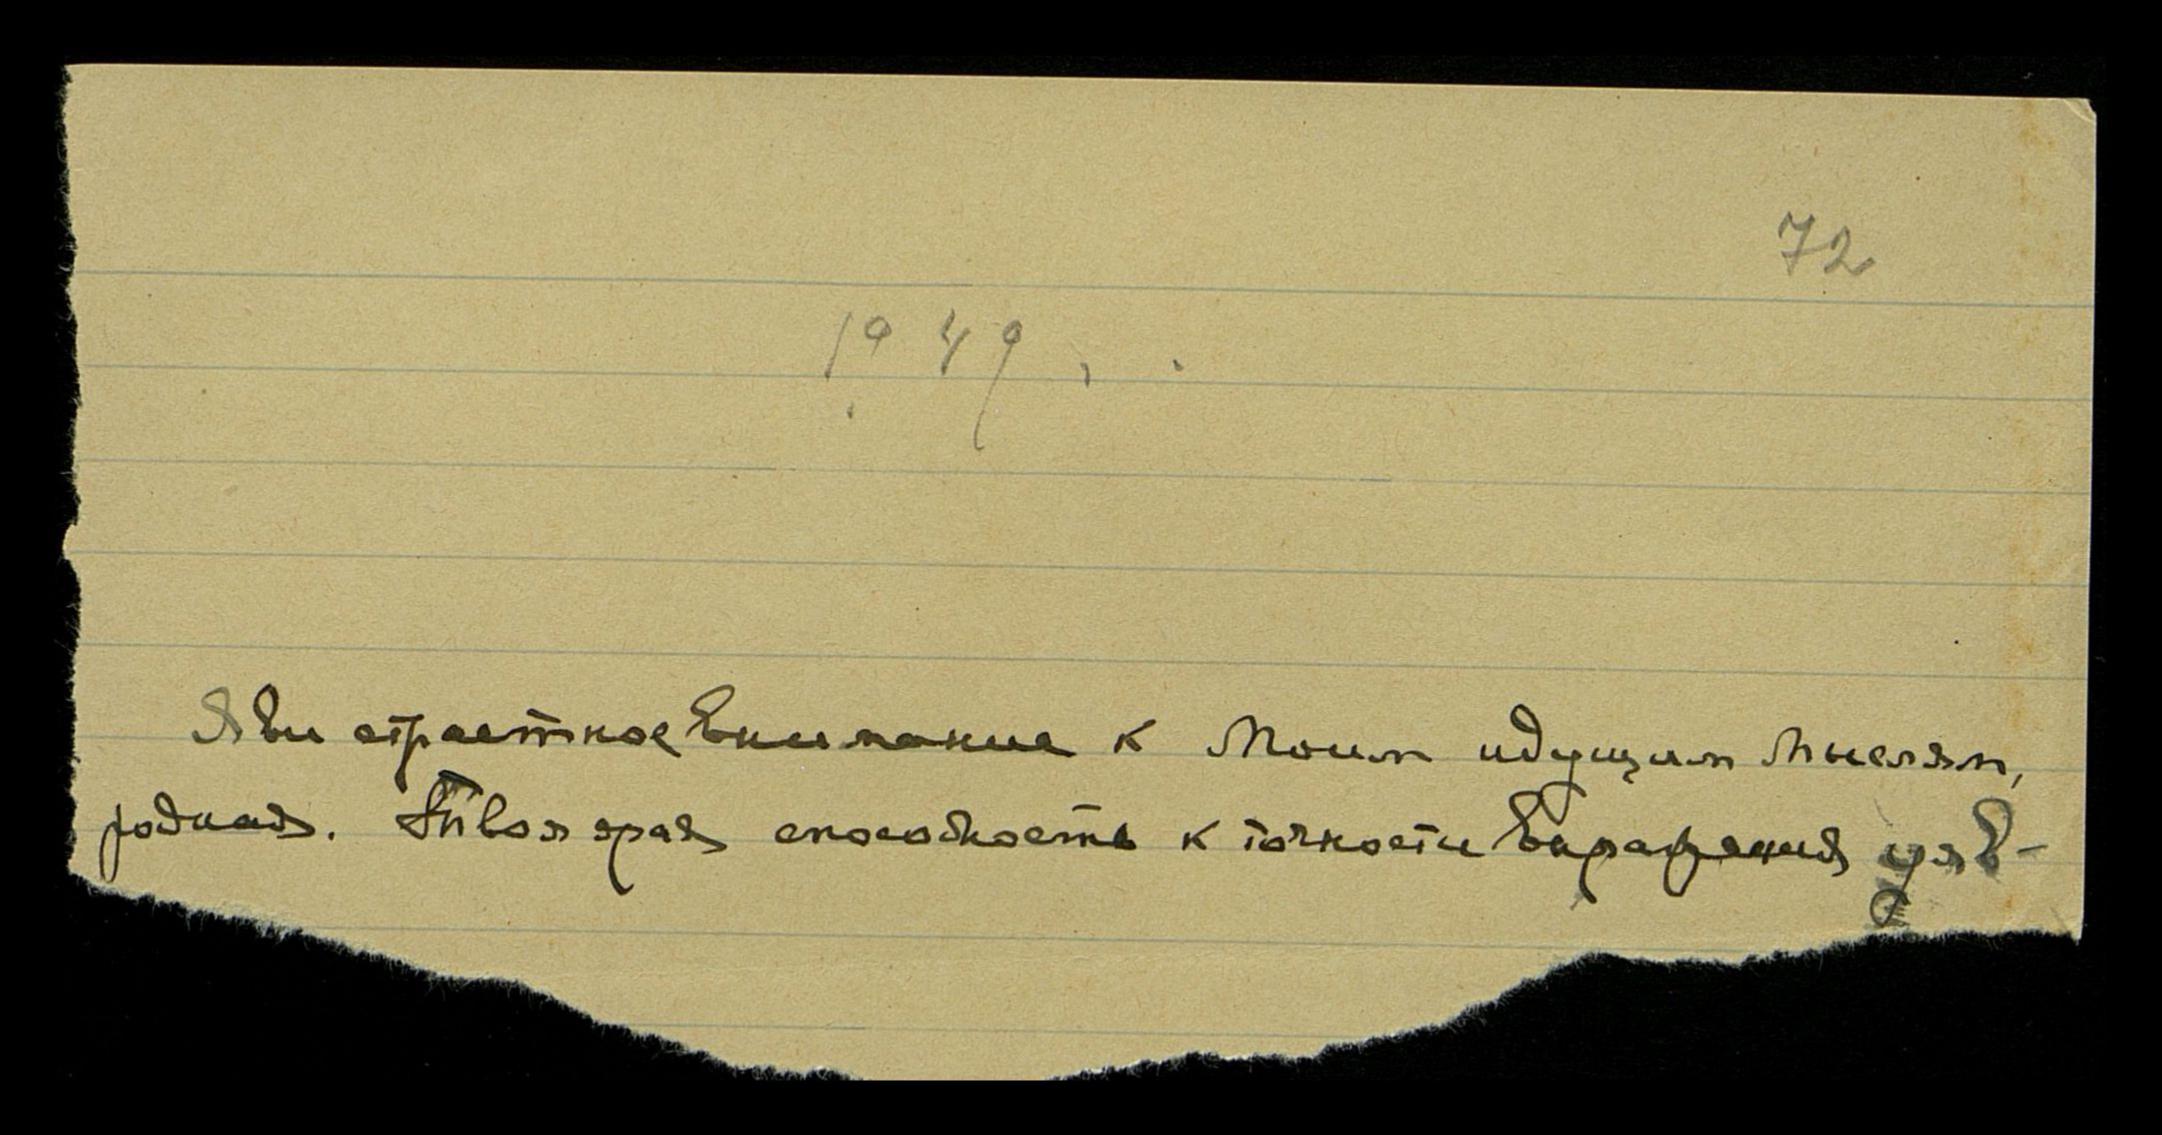 72
1949
Яви страстное внимание к Моим идущим Мыслям,
родная. Твоя ярая способность к точности выражения уяв-